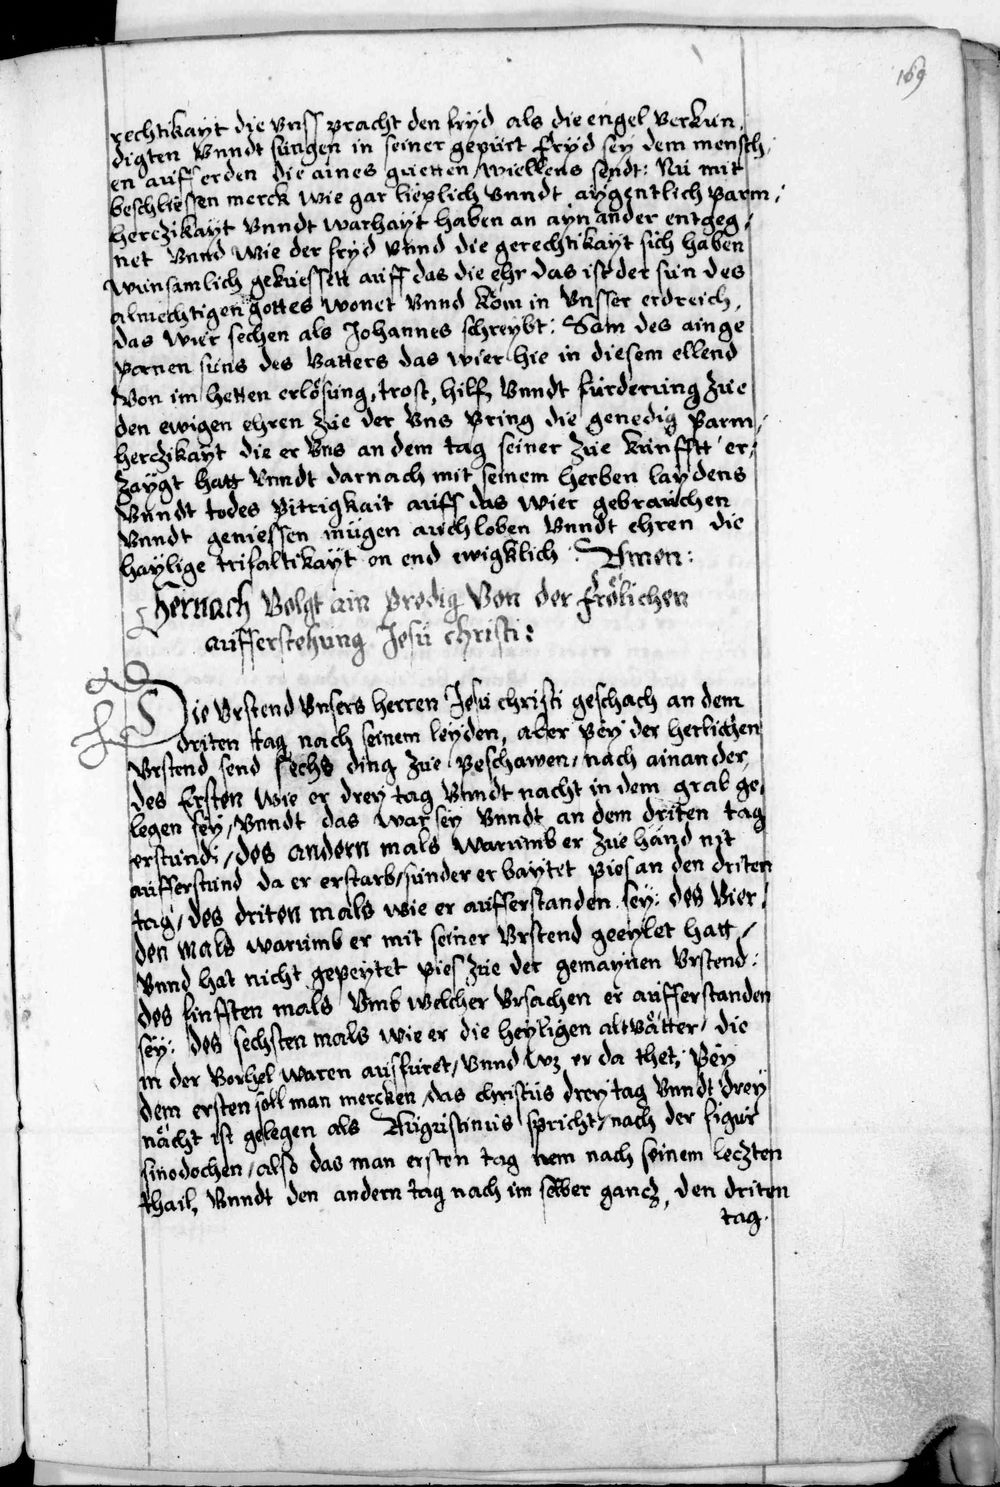 169
rechtikayt die vnss pracht den fryd als die engel verkun,
digten vnndt sungen in seiner gepürt fryd sey dem mensch,
en auff erden die aines guetten willens sendt: Nu mit
beschliessen merck wie gar lieplich vnndt aygentlich parm,
herczikayt vnndt warhayt haben an ayn ander entgeg,
net vnnd wie der fryd vnnd die gerechtikayt sich haben
wunsamlich gekuessett auff das die ehr das ist der sun des
almechtigen gottes wonet vnnd kom in vnsser erdreich,
das wier sechen als Johannes schreybt: Sam des ainge
pornen suns des vatters das wier hie in diesem ellend
von im hetten erlösung, trost, hilf, vnndt furderung zue
den ewigen ehren zue der vns pring die genedig parm,
herczikayt die er vns an dem tag seiner zue kunfftt er,
zaygt hatt vnndt darnach mit seinem herben laydens
vnndt todes pittrigkait auff das wier gebrauchen
vnndt geniessen mügen auch loben vnndt ehren die
haylige trifaltikayt on end ewigklich: Amen:
Hernach volgt ain predig von der frölichen
aufferstehung Jesu christi:
Die vrstend vnsers herren Jesu christi geschach an dem
driten tag nach seinem leyden, aber pey der herlichen
vrstend send sechs ding zue peschawen, nach ainander,
des ersten wie er drey tag vnndt nacht in dem grab ge,
legen sey, vnndt das war sey vnndt an dem driten tag
erstundi, des andern mals warumb er zue hand nit
aufferstund da er erstarb, sunder er baytet pies an den driten
tag, des driten mals wie er aufferstanden sey: des vier,
den mals warumb er mit seiner vrstend geeylet hatt,
vnnd hat nicht gepeytet pies zue der gemaynen vrstend:
des finfften mals vmb welcher vrsachen er aufferstanden
sey: des sechsten mals wie er die heyligen altvätter, die
in der vorhel waren ausfüret, vnnd wz er da thet, Pey
dem ersten soll man mercken, das christus drey tag vnndt drey
nächt ist gelegen als Augustinus spricht, nach der figur
sinodochen, also das man ersten tag nem nach seinem leczten
thail, vnndt den andern tag nach im selber gancz, den driten
tag.